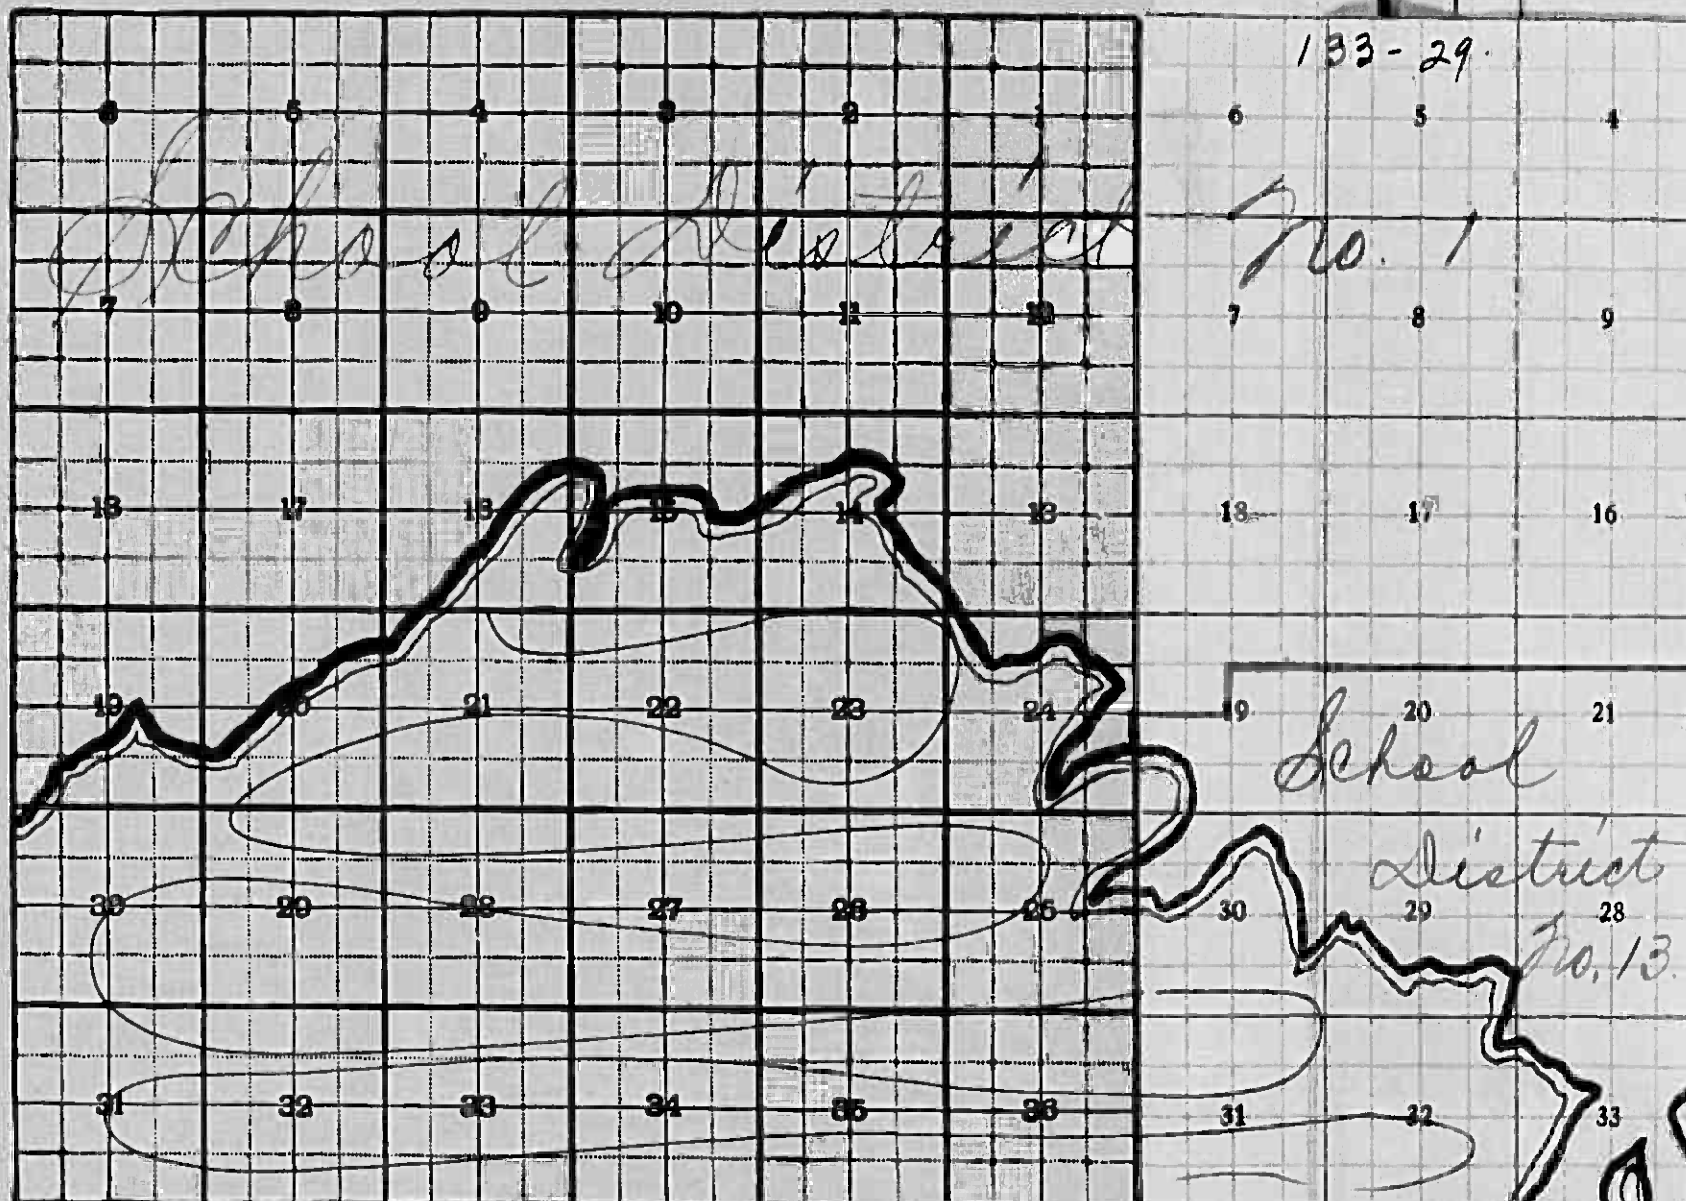 133-29.
6 5 4 3 2 1 6 5 4
School District No. 1
7 8 9 10 11 12 7 8 9
18 17 16 15 14 13 18 17 16
19 20 21 22 23 24 19 20 21
School
District
30 29 28 27 26 25 30 29 28
No. 13.
31 32 33 34 35 36 31 32 33